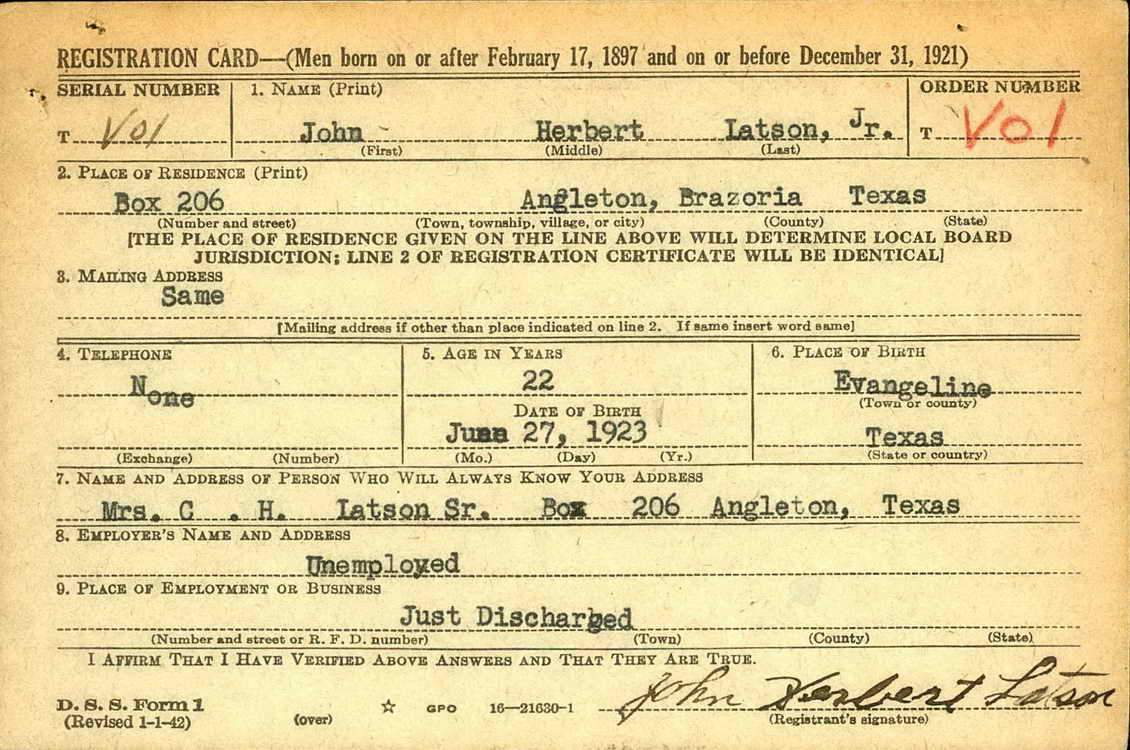 REGISTRATION CARD—(Men born on or after February 17, 1897 and on or before December 31, 1921)
SERIAL NUMBER 1. NAME (Print) ORDER NUMBER
T V01 John Herbert Latson, Jr. T V01
(First) (Middle) (Last)
2. PLACE OF RESIDENCE (Print)
Box 206 Angleton, Brazoria Texas
(Number and street) (Town, township, village, or city) (County) (State)
[THE PLACE OF RESIDENCE GIVEN ON THE LINE ABOVE WILL DETERMINE LOCAL BOARD
JURISDICTION; LINE 2 OF REGISTRATION CERTIFICATE WILL BE IDENTICAL]
3. MAILING ADDRESS
Same
[Mailing address if other than place indicated on line 2. If same insert word same]
4. TELEPHONE 5. AGE IN YEARS 6. PLACE OF BIRTH
None 22 Evangeline
DATE OF BIRTH (Town or county)
27, 1923 Texas
(Exchange) (Number) (Mo.) (Day) (Yr.) (State or country)
7. NAME AND ADDRESS OF PERSON WHO WILL ALWAYS KNOW YOUR ADDRESS
Mrs. C . H. Latson Sr. Box 206 Angleton, Texas
8. EMPLOYER'S NAME AND ADDRESS
Unemployed
9. PLACE OF EMPLOYMENT OR BUSINESS
Just Discharged
(Number and street or R. F. D. number) (Town) (County) (State)
I AFFIRM THAT I HAVE VERIFIED ABOVE ANSWERS AND THAT THEY ARE TRUE.
D. S. S. Form 1 John Herbert Latson
(Revised 1-1-42) (over) ☆ GPO 16—21630-1 (Registrant's signature)